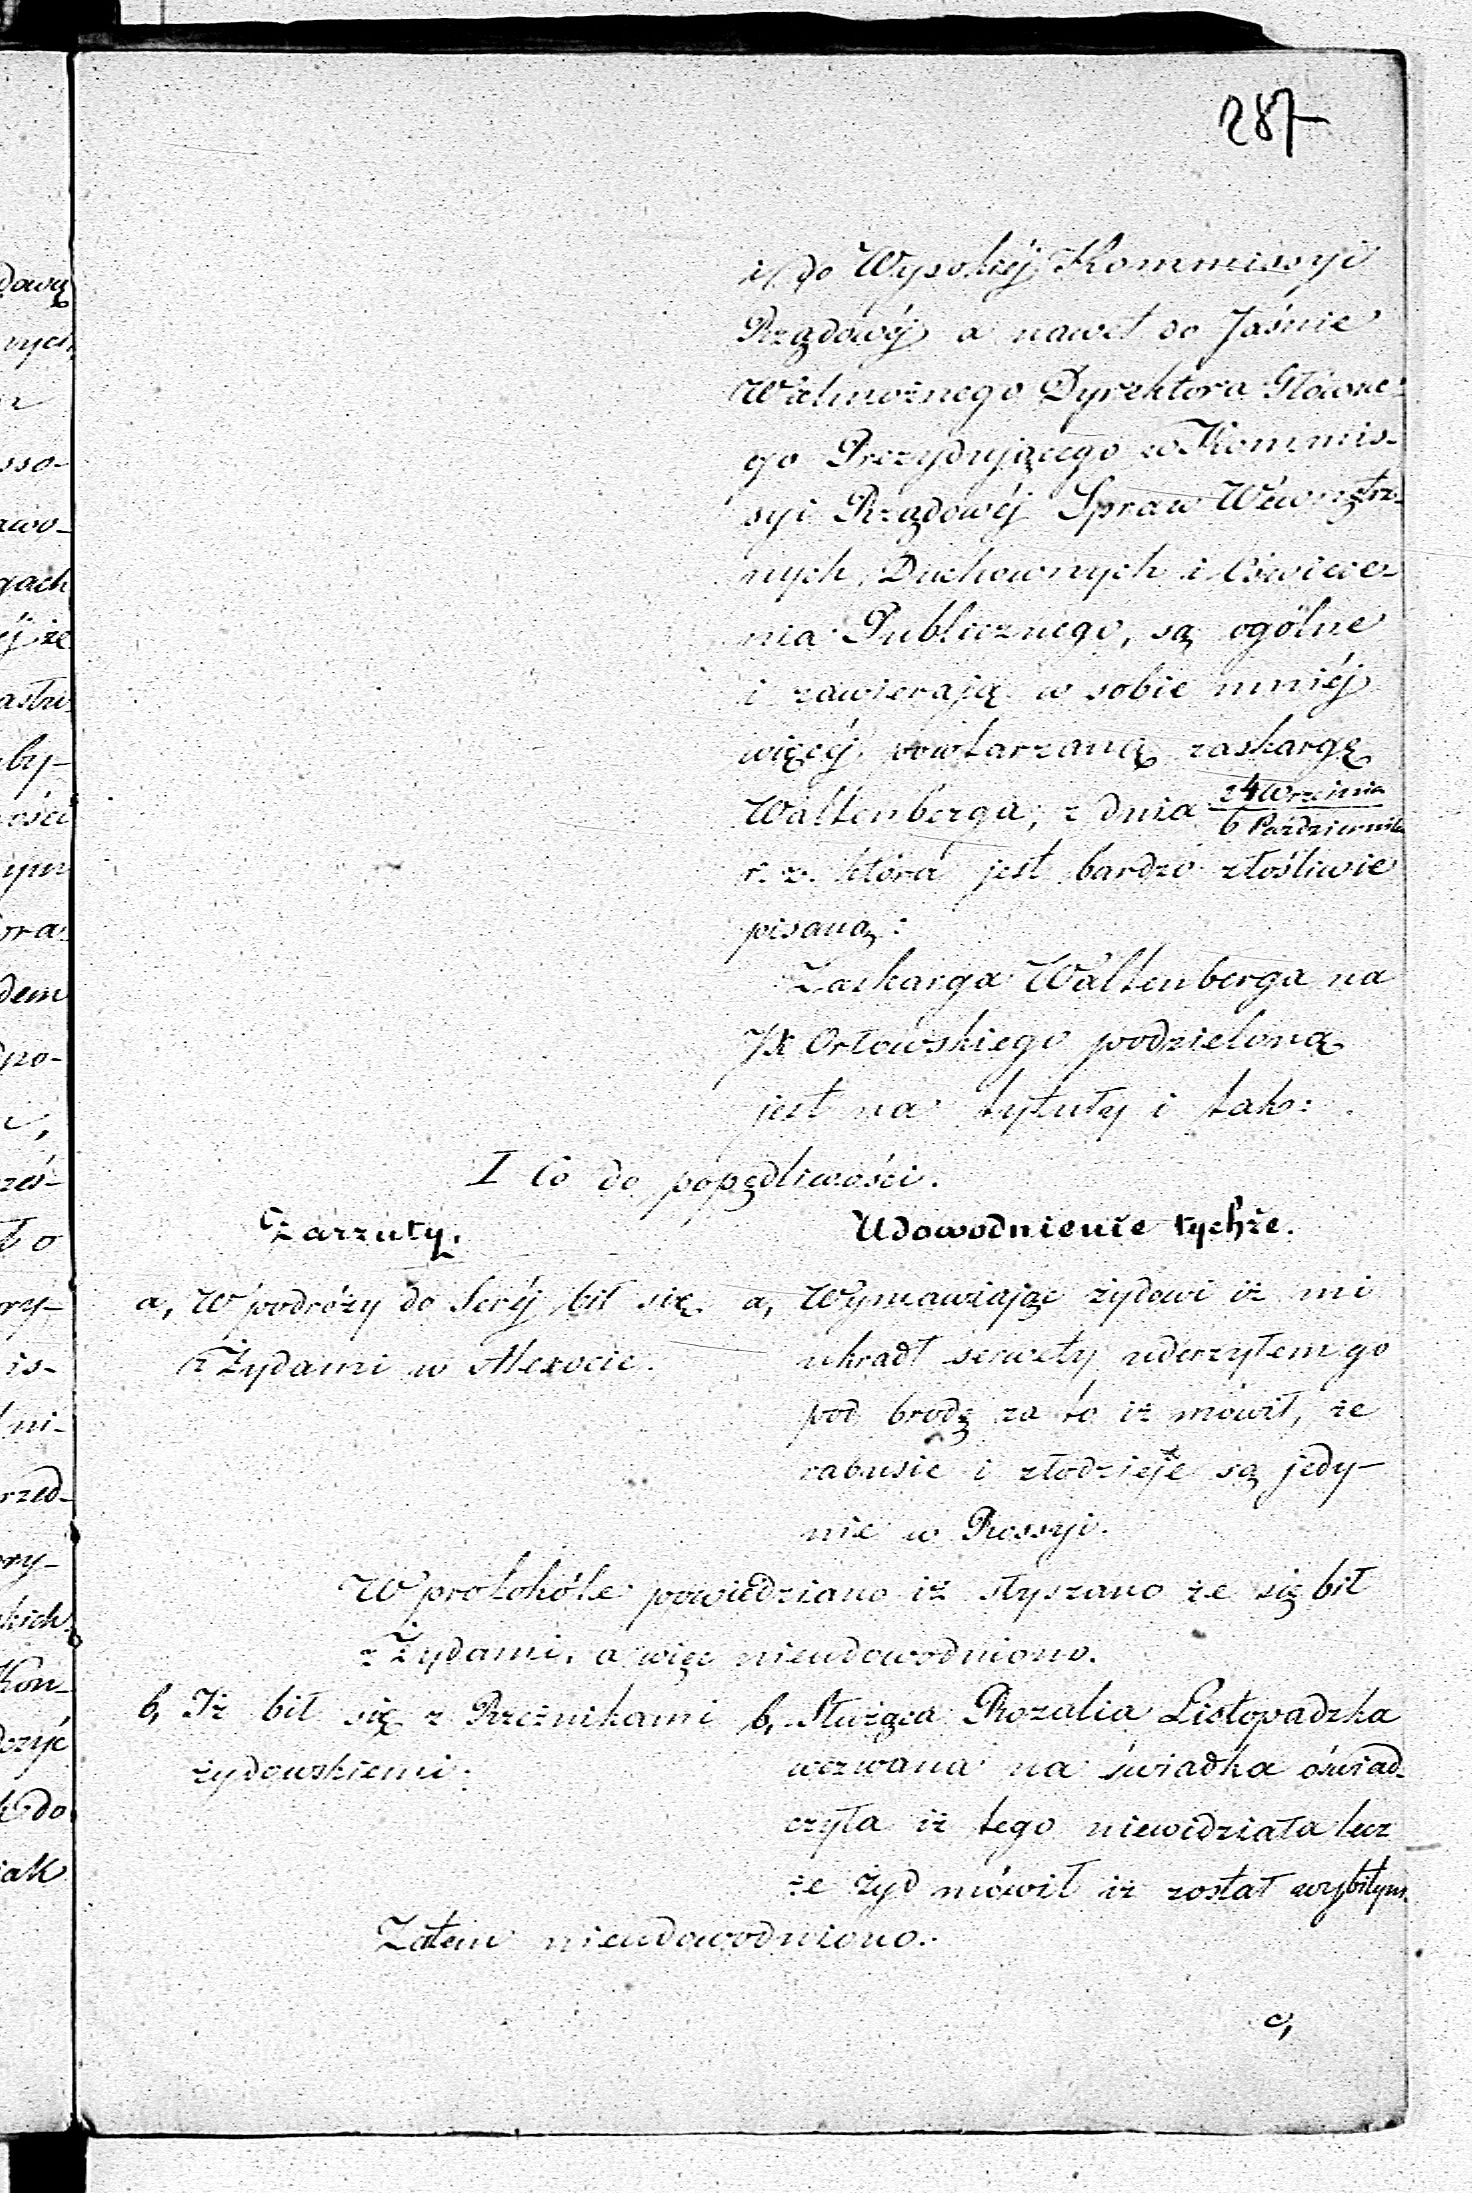 287
i do Wysokiéj Kommissyi
Rządowéj a nawet do Jaśnie
Wielmożnego Dyrektora Główne-
go Prezydującego w Kommis-
syi Rządowéj Spraw Wewnętrz-
nych, Duchownych i Oświece-
nia Publicznego, są ogólne
i zawierają w sobie mniéj
więcéj powtarzaną zaskargę
Waltenberga, z dnia 24 Września
6 Października
r. z. która jest bardzo złośliwie
pisaną:
Zaskarga Waltenberga na
JX Orłowskiego podzieloną
jest na tytuły i tak:
I Co do popędliwości.
Zarzuty.
Udowodnienie tychże.
a, W podróży do Seréj bił się
z Żydami w Alexocie.
a, Wymawiając żydowi iż mi
ukradł serwety uderzyłem go
pod brodę za to iż mówił, że
rabusie i złodzieje są jedy-
nie w Rossyi.
W protokóle powiedziano iż słyszano że się bił
z Żydami, a więc nieudowodniono.
b, Iż bił się z Rzeźnikami
żydowskiemi.
b, Służąca Rozalia Listopadzka
wezwana na świadka oświad-
czyła iż tego niewidziała lecz
że Żyd mówił iż został wybitym.
Zatem nieudowodniono.
c,